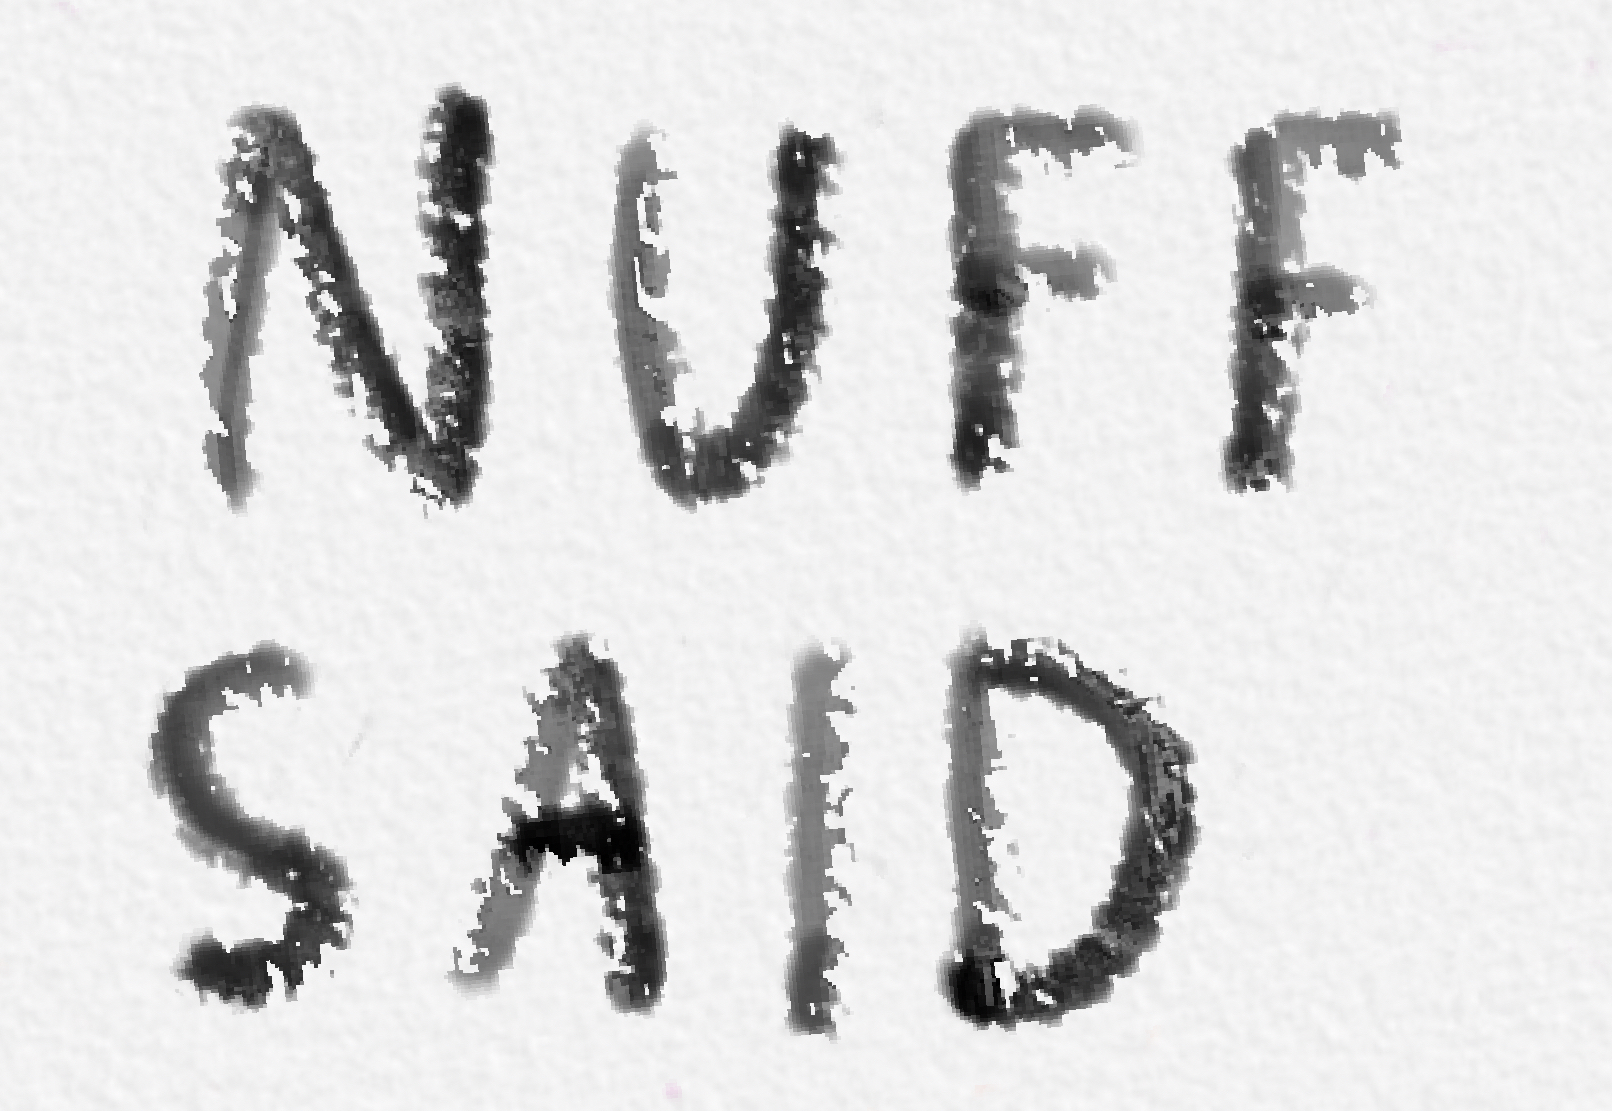 NUFF
SAID